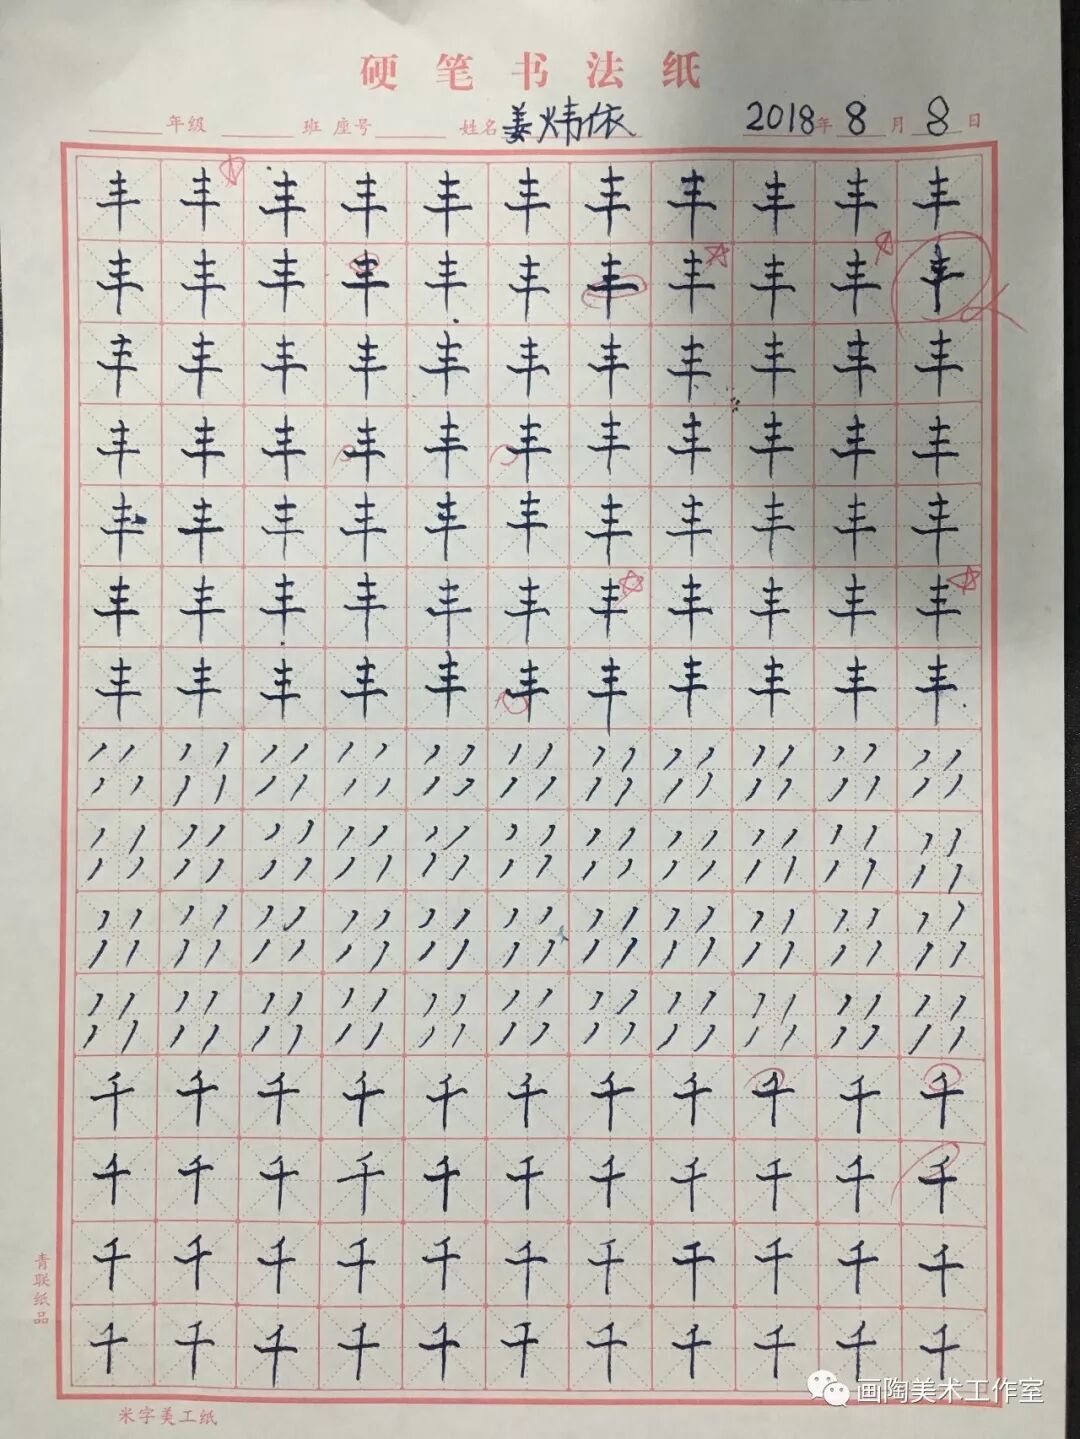 硬笔书法纸
年级 班 座号 姓名 姜炜依 2018年8月8日
丰丰丰丰丰丰丰丰丰丰丰
丰丰丰丰丰丰丰丰丰丰丰
丰丰丰丰丰丰丰丰丰丰丰
丰丰丰丰丰丰丰丰丰丰丰
丰丰丰丰丰丰丰丰丰丰丰
丰丰丰丰丰丰丰丰丰丰丰
丰丰丰丰丰丰丰丰丰丰丰
千千千千千千千千千千千
千千千千千千千千千千千
千千千千千千千千千千千
千千千千千千千千千千千
青联纸品
米字美工纸
画陶美术工作室